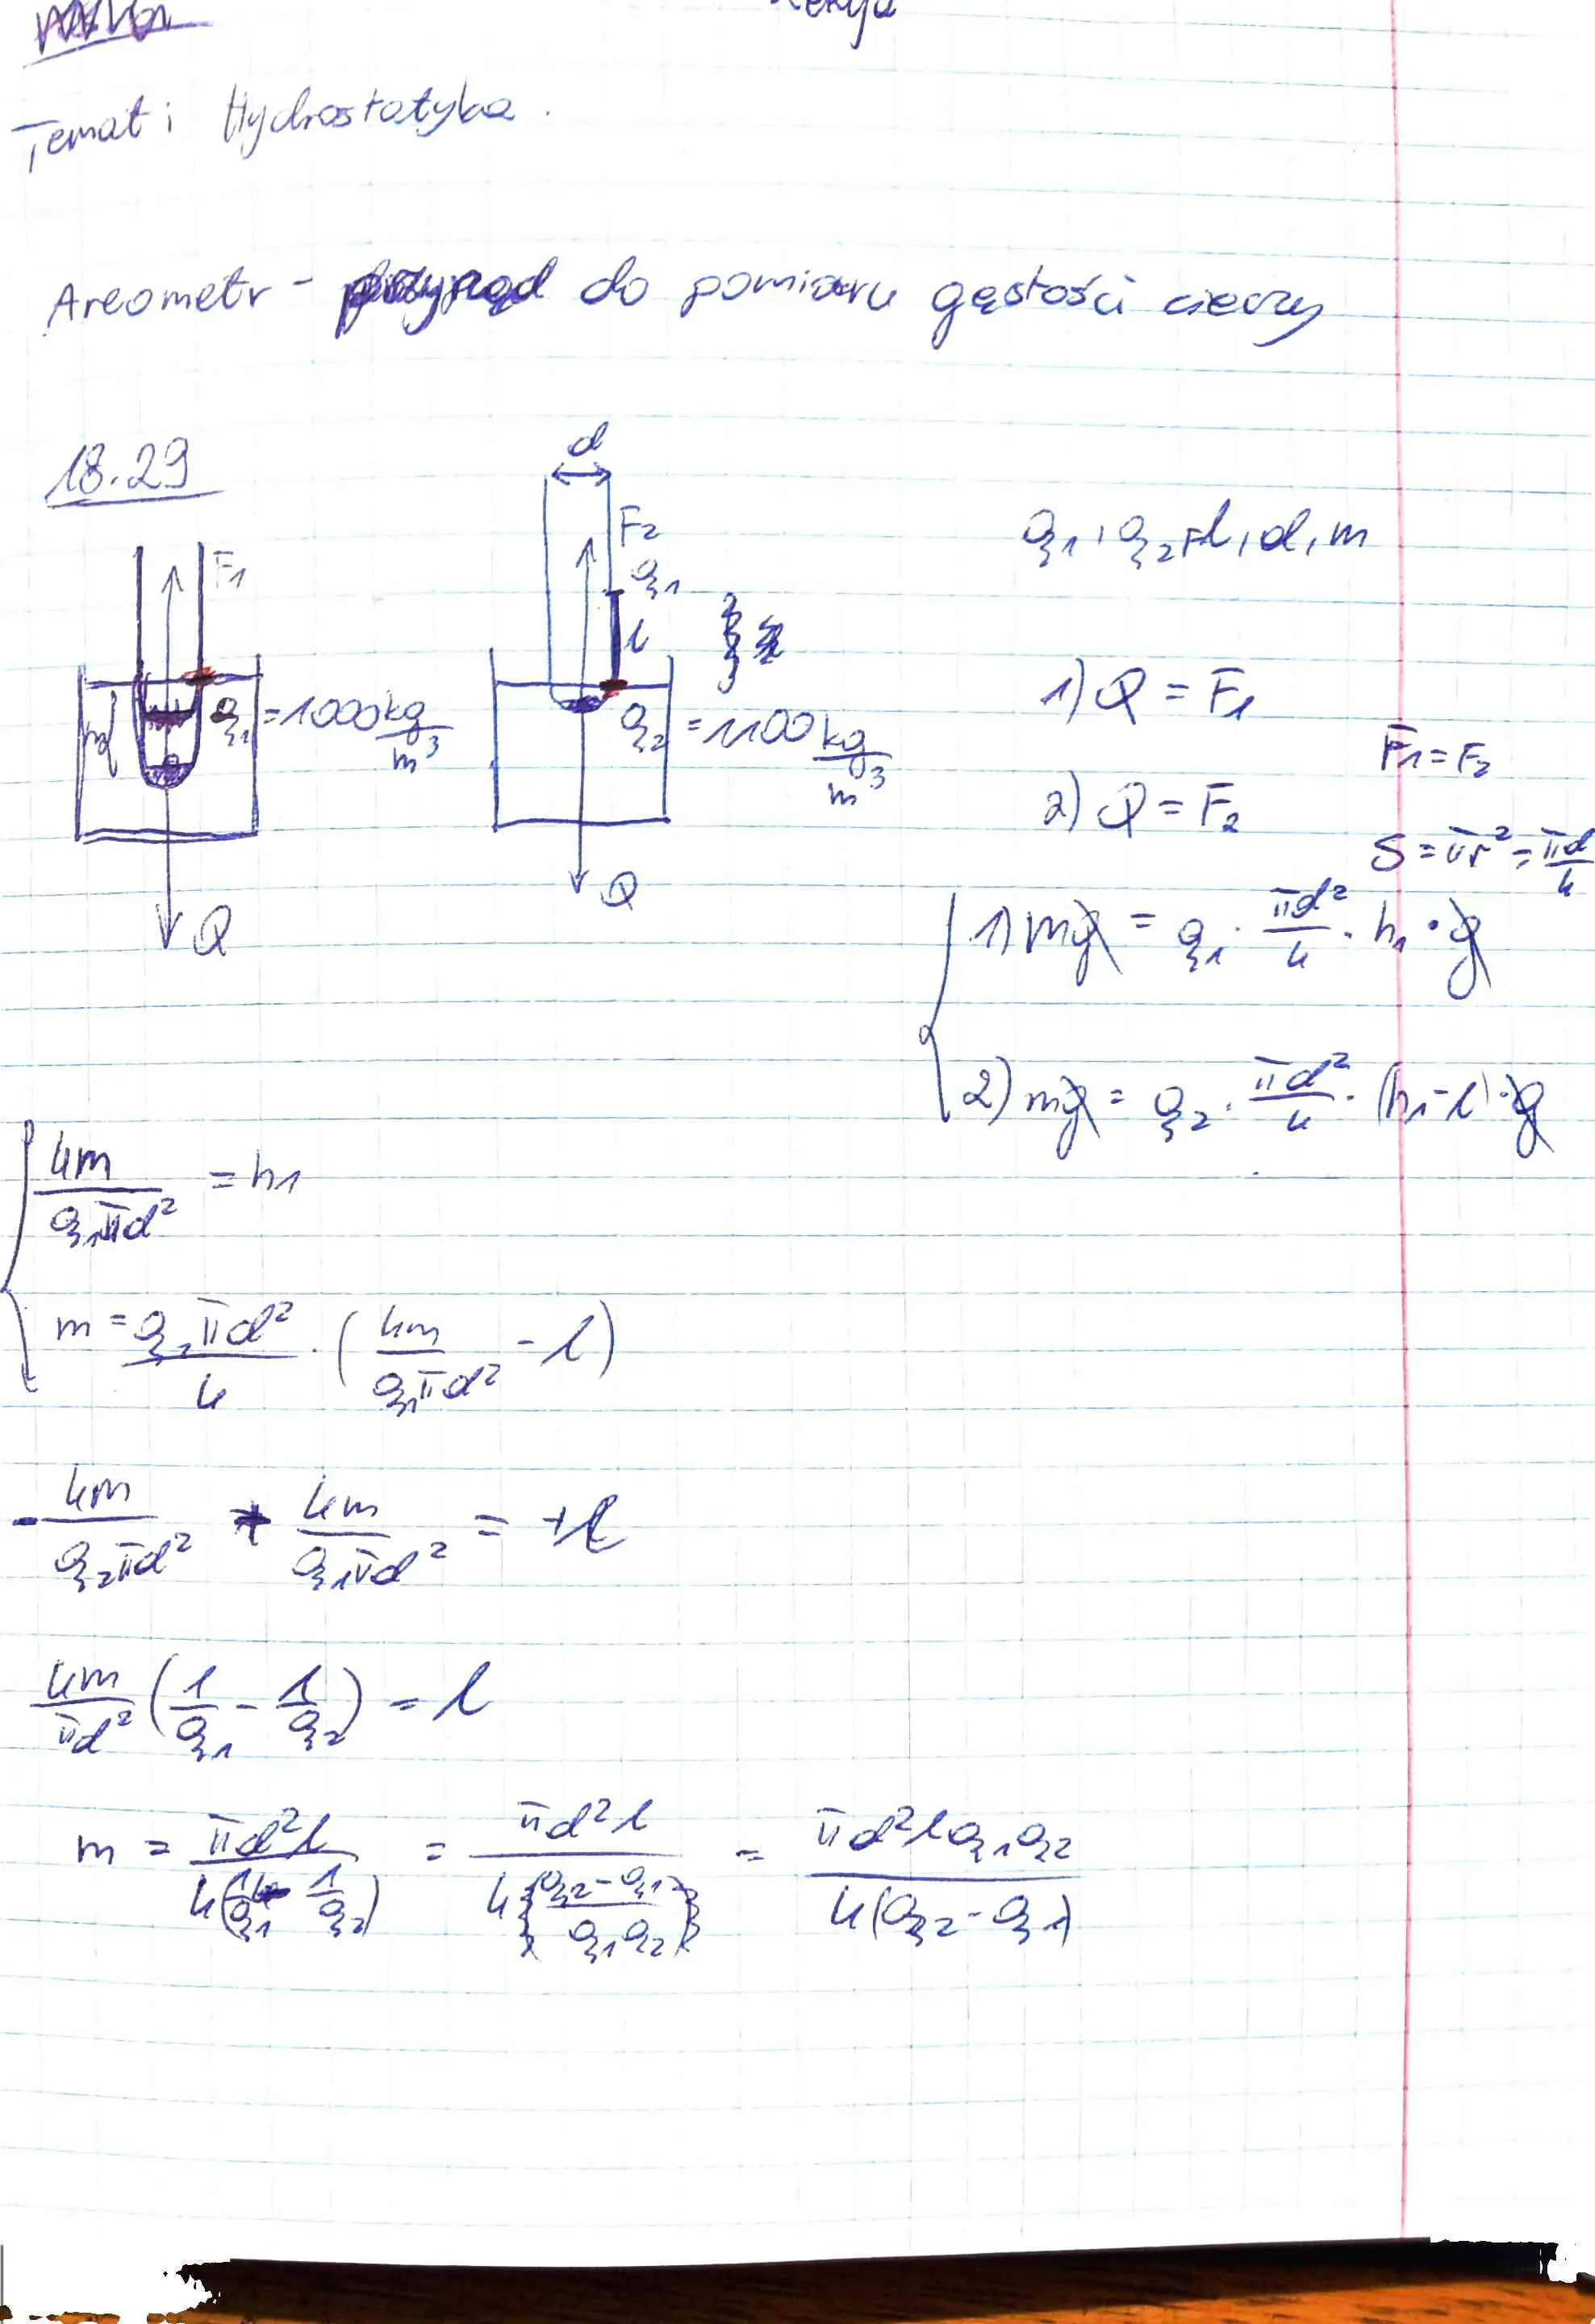 Lekcja
Temat: Hydrostatyka.
Areometr - przyrząd do pomiaru gęstości cieczy
18.29
d
F₁
F₂
ρ₁
l
ρ₁ = 1000 kg/m³
ρ₂ = 1100 kg/m³
Q
Q
ρ₁, ρ₂, l, d, m
1) Q = F₁
F₁ = F₂
2) Q = F₂
S = πr² = πd/4
1) mg = ρ₁ · πd²/4 · h₁ · g
2) mg = ρ₂ · πd²/4 · (h₁ - l) · g
4m/ρ₁πd² = h₁
m = ρ₂πd²/4 · (4m/ρ₁πd² - l)
- 4m/ρ₂πd² + 4m/ρ₁πd² = +l
4m/πd² (1/ρ₁ - 1/ρ₂) = l
m = πd²l/4(1/ρ₁ - 1/ρ₂) = πd²l/4{(ρ₂-ρ₁)/ρ₁ρ₂} = πd²lρ₁ρ₂/4(ρ₂-ρ₁)